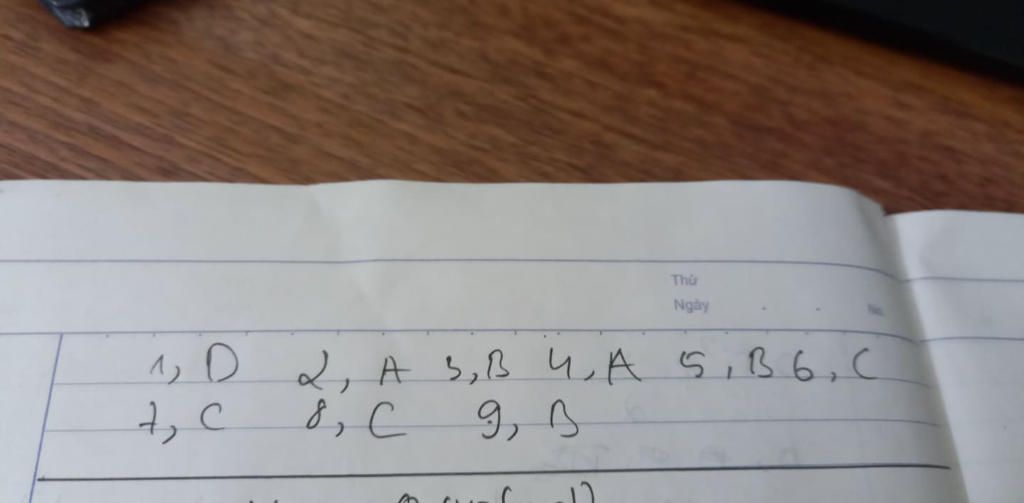 Thứ
Ngày
No.
1, D 2, A 3, B 4, A 5, B 6, C
7, C 8, C 9, B